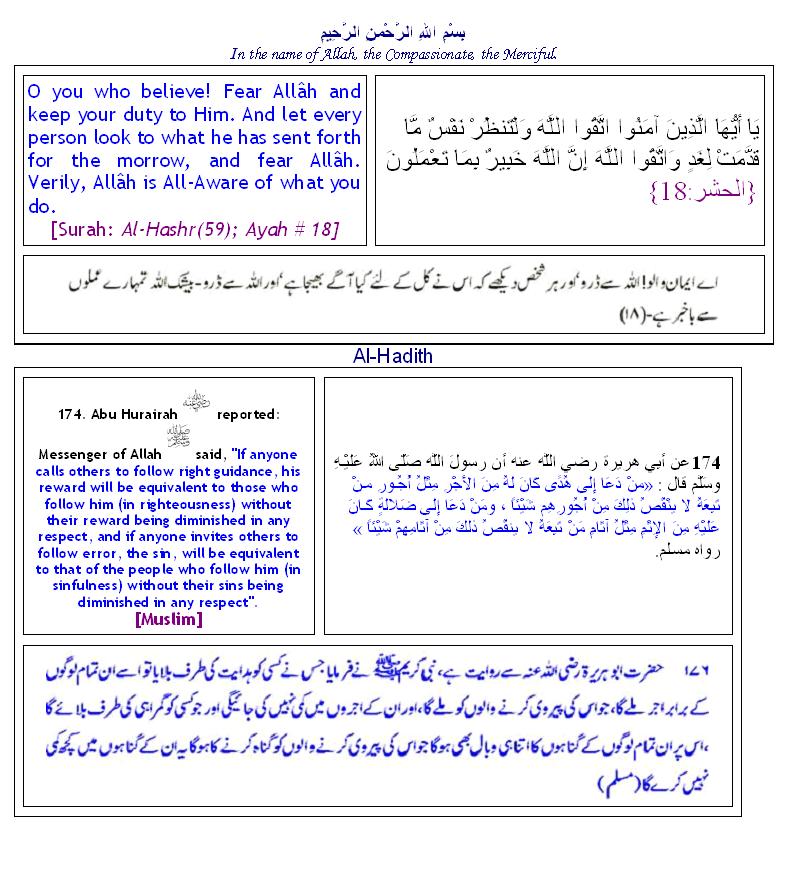 بِسْمِ اللهِ الرَّحْمنِ الرَّحِيمِ
In the name of Allah, the Compassionate, the Merciful.
O you who believe! Fear Allâh and
keep your duty to Him. And let every
person look to what he has sent forth
for the morrow, and fear Allâh.
Verily, Allâh is All-Aware of what you
do.
[Surah: Al-Hashr(59); Ayah # 18]
يَا أَيُّهَا الَّذِينَ آمَنُوا اتَّقُوا اللَّهَ وَلْتَنظُرْ نَفْسٌ مَّا
قَدَّمَتْ لِغَدٍ وَاتَّقُوا اللَّهَ إِنَّ اللَّهَ خَبِيرٌ بِمَا تَعْمَلُونَ
{الحشر:18}
اے ایمان والو! اللہ سے ڈرو، اور ہر شخص دیکھے کہ اس نے کل کے لئے کیا آگے بھیجا ہے، اور اللہ سے ڈرو- بیشک اللہ تمہارے عملوں
سے باخبر ہے-(۱۸)
Al-Hadith
174. Abu Hurairah رضي الله عنه reported:
Messenger of Allah ﷺ said, "If anyone
calls others to follow right guidance, his
reward will be equivalent to those who
follow him (in righteousness) without
their reward being diminished in any
respect, and if anyone invites others to
follow error, the sin, will be equivalent
to that of the people who follow him (in
sinfulness) without their sins being
diminished in any respect".
[Muslim]
174عن أبي هريرة رضي اللَّه عنه أن رسولَ اللَّه صَلّى اللهُ عَلَيْهِ
وسَلَّم قال : «مَنْ دَعَا إِلَى هُدًى كانَ لَهُ مِنَ الأَجْرِ مِثْلُ أُجُورِ مَنْ
تَبِعَهُ لا يَنْقُصُ ذَلِكَ مِنْ أُجُورِهِم شَيْئاً ، ومَنْ دَعَا إِلَى ضَلالَةٍ كَانَ
عَلَيْهِ مِنَ الإِثْمِ مِثْلُ آثَامِ مَنْ تَبِعَهُ لا ينقُصُ ذَلِكَ مِنْ آثَامِهِمْ شَيْئاً »
رواه مسلم.
۱۷۶ حضرت ابو ہریرۃ رضی اللہ عنہ سے روایت ہے، نبی کریم ﷺ نے فرمایا جس نے کسی کو ہدایت کی طرف بلایا تو اسے ان تمام لوگوں
کے برابر اجر ملے گا، جو اس کی پیروی کرنے والوں کو ملے گا، اور ان کے اجروں میں کمی نہیں کی جائیگی اور جو کسی کو گمراہی کی طرف بلائے گا
،اس پر ان تمام لوگوں کے گناہوں کا اتنا ہی وبال بھی ہوگا جو اس کی پیروی کرنے والوں کو گناہ کرنے کا ہوگا یہ ان کے گناہوں میں کچھ کمی
نہیں کرے گا (مسلم)